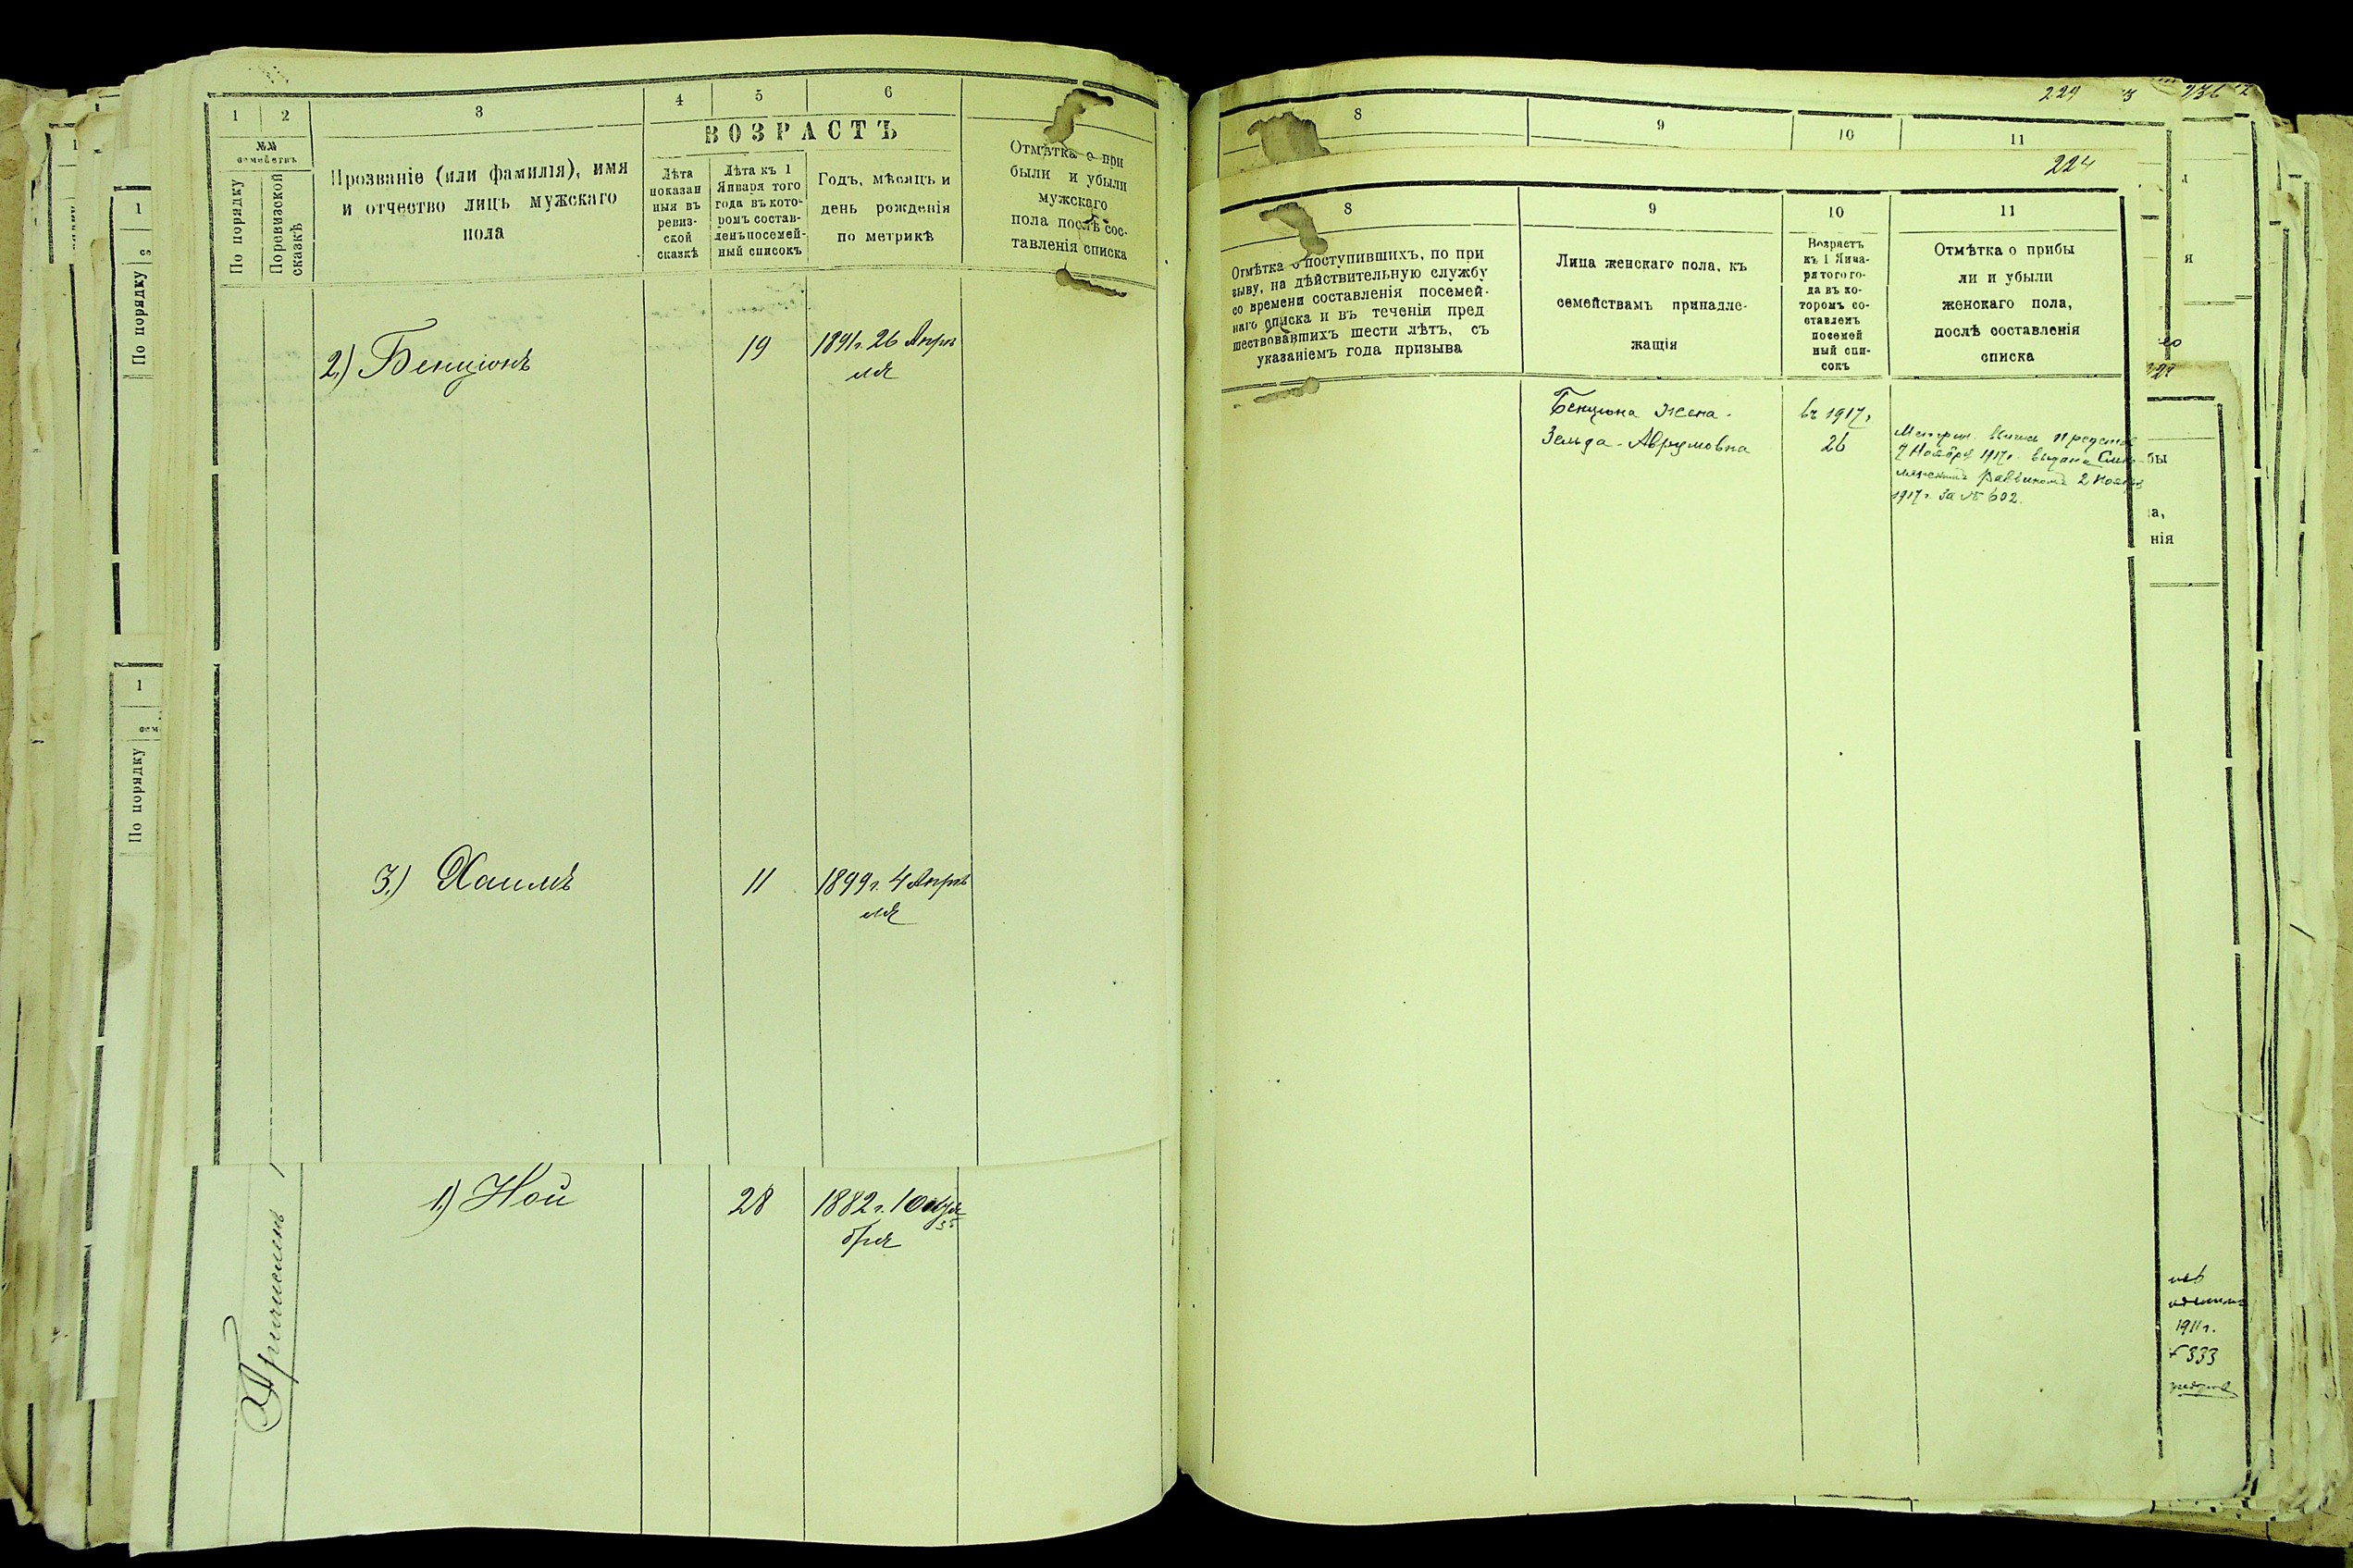 1 2 3 4 5 6
№№ семействъ
По порядку
Поревизской сказкѣ
Прозваніе (или фамилія), имя
и отчество лицъ мужскаго
пола
ВОЗРАСТЪ
Лѣта
показан
ныя въ
ревиз-
ской
сказкѣ
Лѣта къ 1
Января того
года въ кото-
ромъ состав-
ленъ посемей-
ный списокъ
Годъ, мѣсяцъ и
день рожденія
по метрикѣ
Отмѣтка о при
были и убыли
мужскаго
пола послѣ сос-
тавленія списка
2.) Бенціонъ 19 1891 г. 26 Апрѣ
ля
3.) Хаимъ 11 1899 г. 4 Апрѣ
ля
1.) Ной 28 1882 г. 10
бря
Причисленъ
1
По порядку
1
По порядку
229
8 9 10 11
224
8 9 10 11
Отмѣтка о поступившихъ, по при
зыву, на дѣйствительную службу
со времени составленія посемей-
наго списка и въ теченіи пред
шествовавшихъ шести лѣтъ, съ
указаніемъ года призыва
Лица женскаго пола, къ
семействамъ принадле-
жащія
Возрастъ
къ 1 Янва-
ря того го-
да въ ко-
торомъ со-
ставленъ
посемей
ный спи-
сокъ
Отмѣтка о прибы
ли и убыли
женскаго пола,
послѣ составленія
списка
Бенціона жена - въ 1917 г.
Зельда - Абрумовна 26
Метрич. выпись представ
7 Ноября 1917 г. выдана
Раввиномъ 2 Ноября
1917 г. за № 602.
бы
а,
нія
1911 г.
333